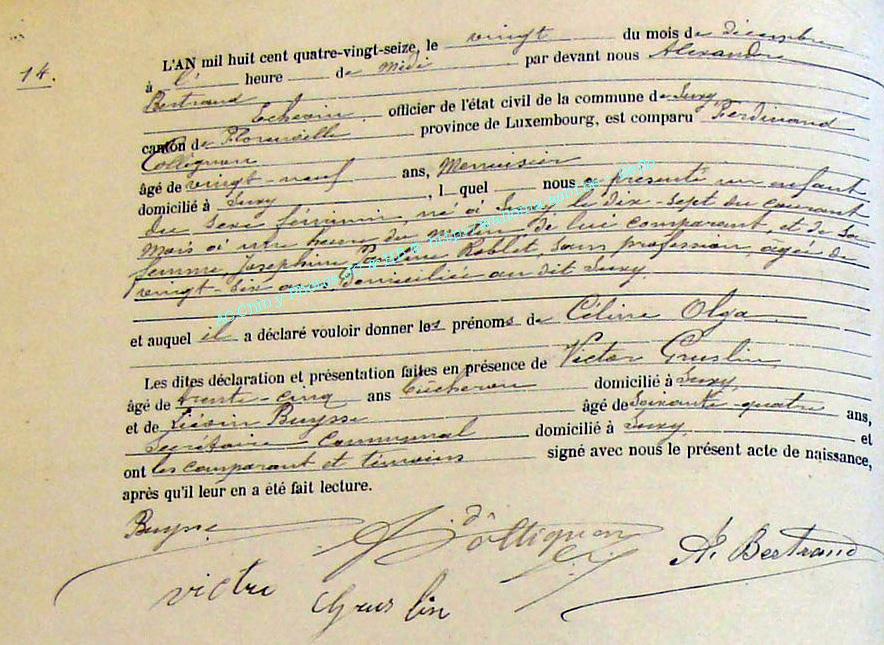 14.
L'AN mil huit cent quatre-vingt-seize, le vingt du mois de décembre
à l' heure de Midi par devant nous Alexandre
Bertrand Echevin, officier de l'état civil de la commune de Suxy,
canton de Florenville province de Luxembourg, est comparu Ferdinand
Collignon
âgé de vingt-neuf ans, Menuisier
domicilié à Suxy, l quel nous a présenté un enfant
du sexe féminin, né à Suxy le dix-sept du courant
mois à une heure du matin de lui comparant, et de sa
femme, Joséphine Pauline Roblet, sans profession, âgée de
vingt-six ans, domiciliée au dit Suxy.
et auquel il a déclaré vouloir donner les prénoms de Céline Olga
Les dites déclaration et présentation faites en présence de Victor Gruslin,
âgé de trente-cinq ans bûcheron domicilié à Suxy,
et de Liévin Buysse âgé de Soixante-quatre ans,
Secrétaire Communal domicilié à Suxy, et
ont les comparant et témoins signé avec nous le présent acte de naissance,
après qu'il leur en a été fait lecture.
Buysse Collignon A. Bertrand
victor Gruslin